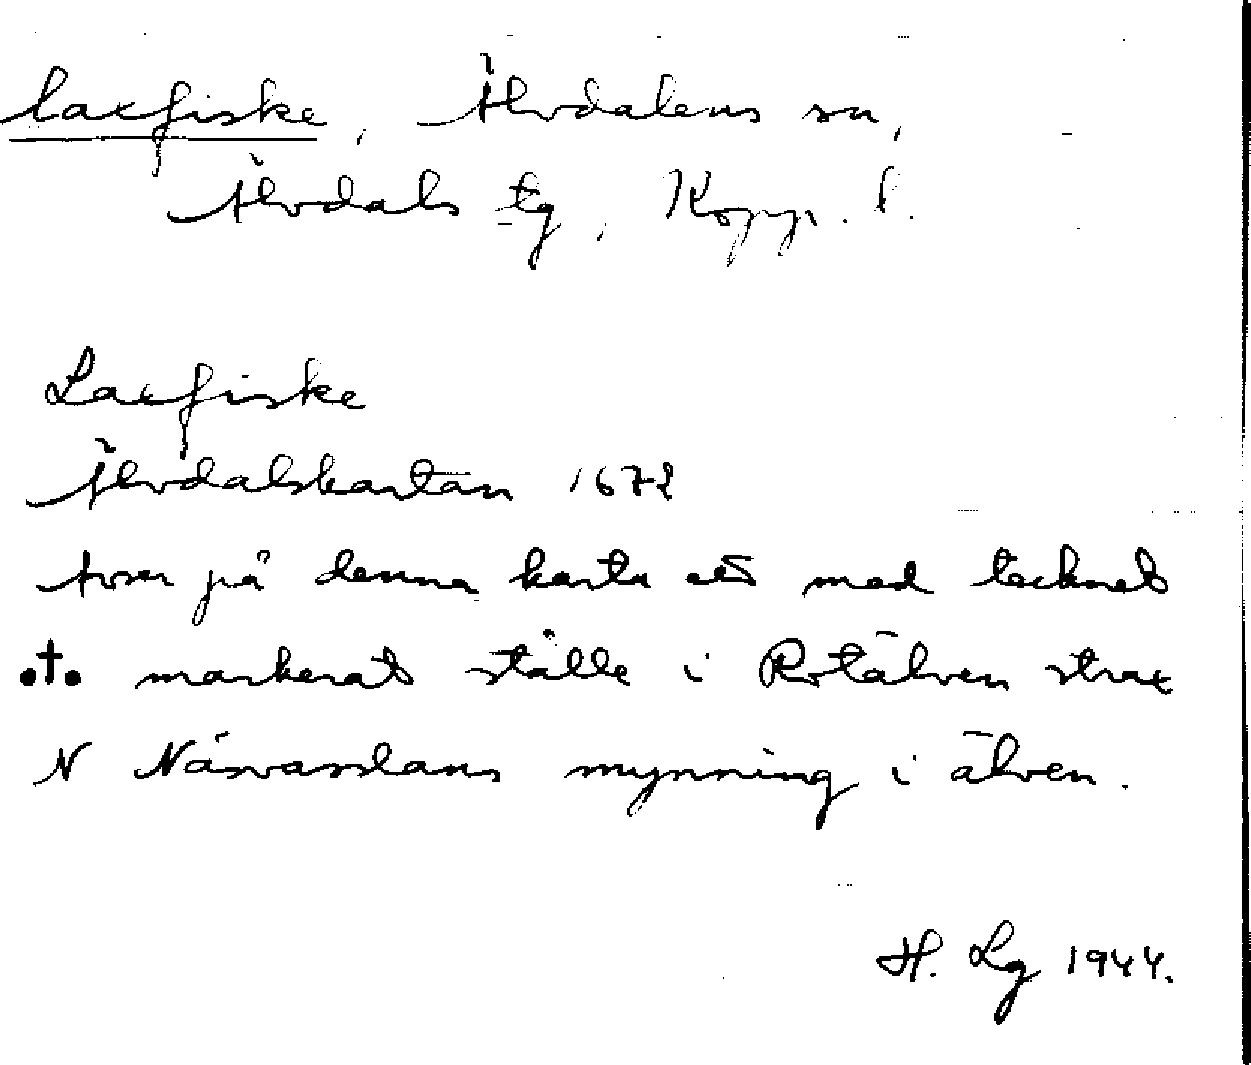 laxfiske, Älvdalens sn,
Älvdals tg, Kopp. l.
Laxfiske
Älvdalskartan 1672
Avser på denna karta ett med tecknet
.†. markerat ställe i Rotälven strax
N Näsvasslans mynning i älven.
H. Lg 1944.